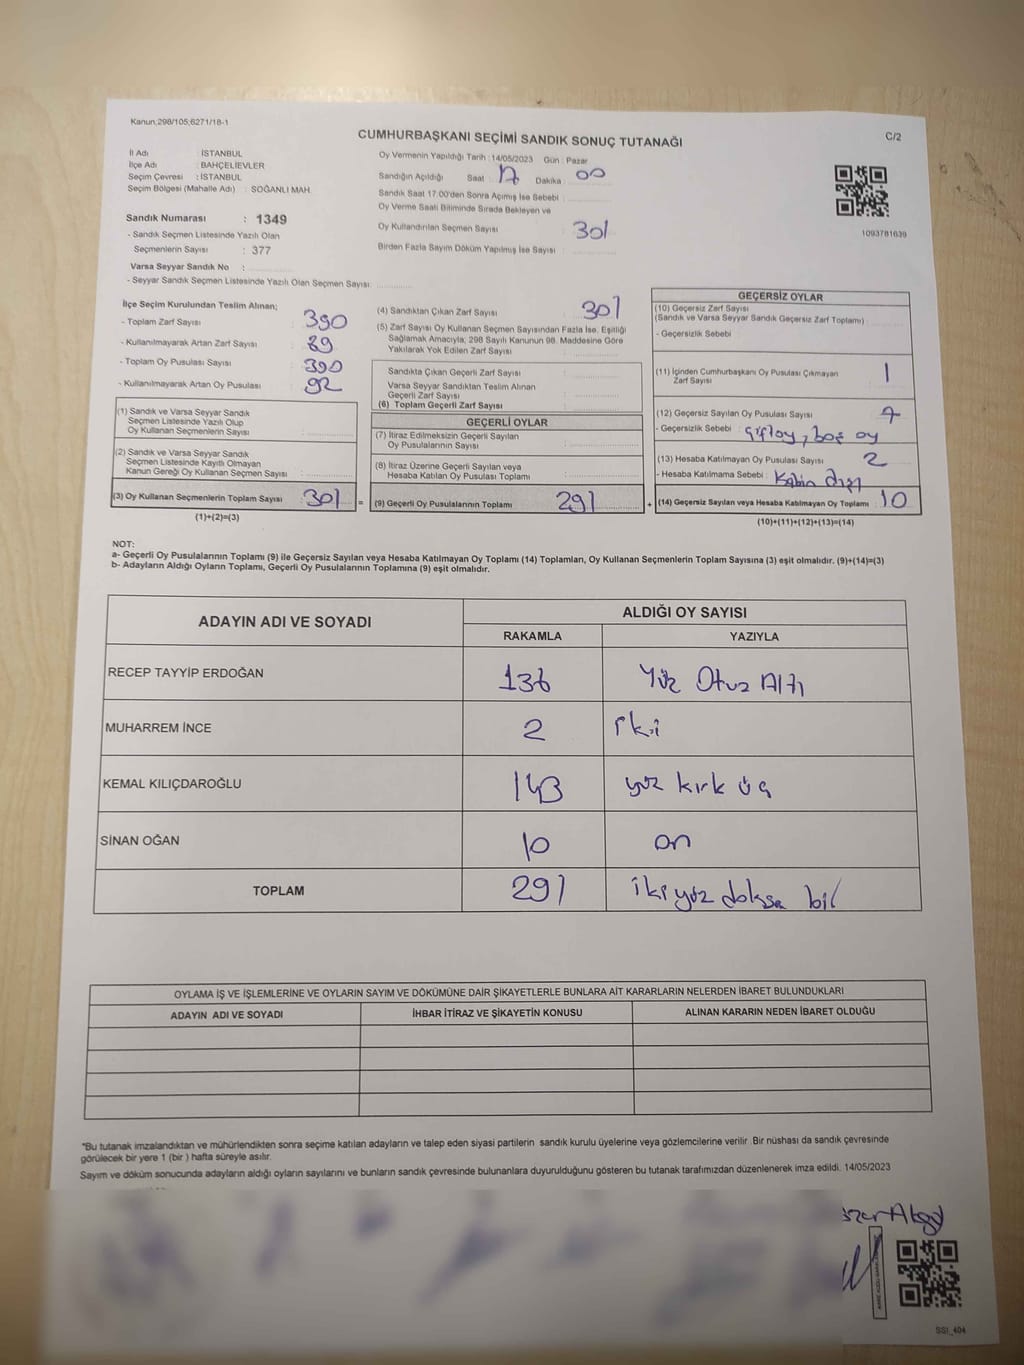 Kanun;298/105;6271/18-1
C/2
CUMHURBAŞKANI SEÇİMİ SANDIK SONUÇ TUTANAĞI
İl Adı : İSTANBUL
İlçe Adı : BAHÇELİEVLER
Seçim Çevresi : İSTANBUL
Seçim Bölgesi (Mahalle Adı) : SOĞANLI MAH.
Sandık Numarası : 1349
- Sandık Seçmen Listesinde Yazılı Olan
Seçmenlerin Sayısı : 377
Varsa Seyyar Sandık No :
- Seyyar Sandık Seçmen Listesinde Yazılı Olan Seçmen Sayısı:
Oy Vermenin Yapıldığı Tarih : 14/05/2023 Gün : Pazar
Sandığın Açıldığı Saat 17 Dakika 00
Sandık Saat 17.00'den Sonra Açımış İse Sebebi :
Oy Verme Saati Bitiminde Sırada Bekleyen ve
Oy Kullandırılan Seçmen Sayısı 301
Birden Fazla Sayım Döküm Yapılmış İse Sayısı :
1093781639
İlçe Seçim Kurulundan Teslim Alınan;
- Toplam Zarf Sayısı : 390
- Kullanılmayarak Artan Zarf Sayısı : 89
- Toplam Oy Pusulası Sayısı : 390
- Kullanılmayarak Artan Oy Pusulası : 92
(1) Sandık ve Varsa Seyyar Sandık
Seçmen Listesinde Yazılı Olup
Oy Kullanan Seçmenlerin Sayısı :
(2) Sandık ve Varsa Seyyar Sandık
Seçmen Listesinde Kayıtlı Olmayan
Kanun Gereği Oy Kullanan Seçmen Sayısı :
(3) Oy Kullanan Seçmenlerin Toplam Sayısı : 301 =
(1)+(2)=(3)
(4) Sandıktan Çıkan Zarf Sayısı : 301
(5) Zarf Sayısı Oy Kullanan Seçmen Sayısından Fazla İse, Eşitliği
Sağlamak Amacıyla; 298 Sayılı Kanunun 98. Maddesine Göre
Yakılarak Yok Edilen Zarf Sayısı :
Sandıkta Çıkan Geçerli Zarf Sayısı :
Varsa Seyyar Sandıktan Teslim Alınan
Geçerli Zarf Sayısı :
(6) Toplam Geçerli Zarf Sayısı :
GEÇERLİ OYLAR
(7) İtiraz Edilmeksizin Geçerli Sayılan
Oy Pusulalarının Sayısı :
(8) İtiraz Üzerine Geçerli Sayılan veya
Hesaba Katılan Oy Pusulası Toplamı :
(9) Geçerli Oy Pusulalarının Toplamı : 291 +
GEÇERSİZ OYLAR
(10) Geçersiz Zarf Sayısı
(Sandık ve Varsa Seyyar Sandık Geçersiz Zarf Toplamı) :
- Geçersizlik Sebebi :
(11) İçinden Cumhurbaşkanı Oy Pusulası Çıkmayan
Zarf Sayısı : 1
(12) Geçersiz Sayılan Oy Pusulası Sayısı : 7
- Geçersizlik Sebebi : çift oy, boş oy
(13) Hesaba Katılmayan Oy Pusulası Sayısı : 2
- Hesaba Katılmama Sebebi : Kabin dışı
(14) Geçersiz Sayılan veya Hesaba Katılmayan Oy Toplamı : 10
(10)+(11)+(12)+(13)=(14)
NOT:
a- Geçerli Oy Pusulalarının Toplamı (9) ile Geçersiz Sayılan veya Hesaba Katılmayan Oy Toplamı (14) Toplamları, Oy Kullanan Seçmenlerin Toplam Sayısına (3) eşit olmalıdır. (9)+(14)=(3)
b- Adayların Aldığı Oyların Toplamı, Geçerli Oy Pusulalarının Toplamına (9) eşit olmalıdır.
ADAYIN ADI VE SOYADI ALDIĞI OY SAYISI
RAKAMLA YAZIYLA
RECEP TAYYİP ERDOĞAN 136 Yüz Otuz Altı
MUHARREM İNCE 2 İki
KEMAL KILIÇDAROĞLU 143 yüz kırk üç
SİNAN OĞAN 10 on
TOPLAM 291 iki yüz doksa bir
OYLAMA İŞ VE İŞLEMLERİNE VE OYLARIN SAYIM VE DÖKÜMÜNE DAİR ŞİKAYETLERLE BUNLARA AİT KARARLARIN NELERDEN İBARET BULUNDUKLARI
ADAYIN ADI VE SOYADI İHBAR İTİRAZ VE ŞİKAYETİN KONUSU ALINAN KARARIN NEDEN İBARET OLDUĞU
*Bu tutanak imzalandıktan ve mühürlendikten sonra seçime katılan adayların ve talep eden siyasi partilerin sandık kurulu üyelerine veya gözlemcilerine verilir. Bir nüshası da sandık çevresinde
görülecek bir yere 1 (bir ) hafta süreyle asılır.
Sayım ve döküm sonucunda adayların aldığı oyların sayılarını ve bunların sandık çevresinde bulunanlara duyurulduğunu gösteren bu tutanak tarafımızdan düzenlenerek imza edildi. 14/05/2023
SSI_404